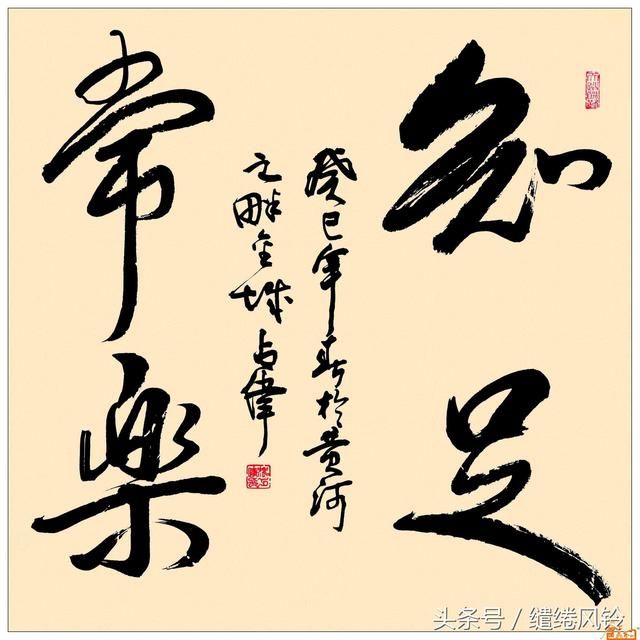 知足
常樂
癸巳年春於黄河
之畔金城占偉
头条号／缱绻风铃